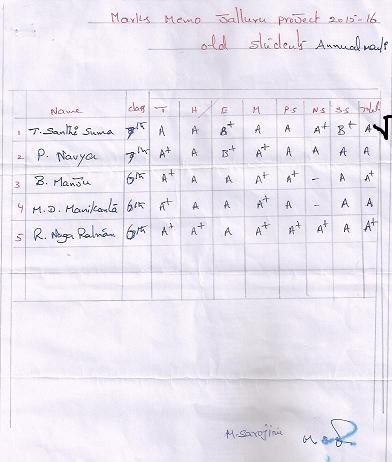 Marks Memo Jalluru project 2015-16
old students Annual marks
Name class T H E M P.S N.S S.S Total
1 T. Santhi Suma 8th A A B+ A A A+ B+ A
2 P. Navya 7th A+ A B+ A+ A A A A
3 B. Manoj 6th A+ A A A+ A+ - A A+
4 M.D. Manikanta 6th A+ A A A+ A - A A
5 R. Naga Ratnam 6th A+ A+ A A+ A+ A+ A A+
M. Sarojini